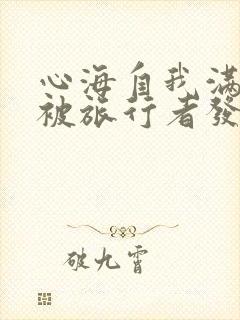 心海自我滿
被旅行者發
破九霄